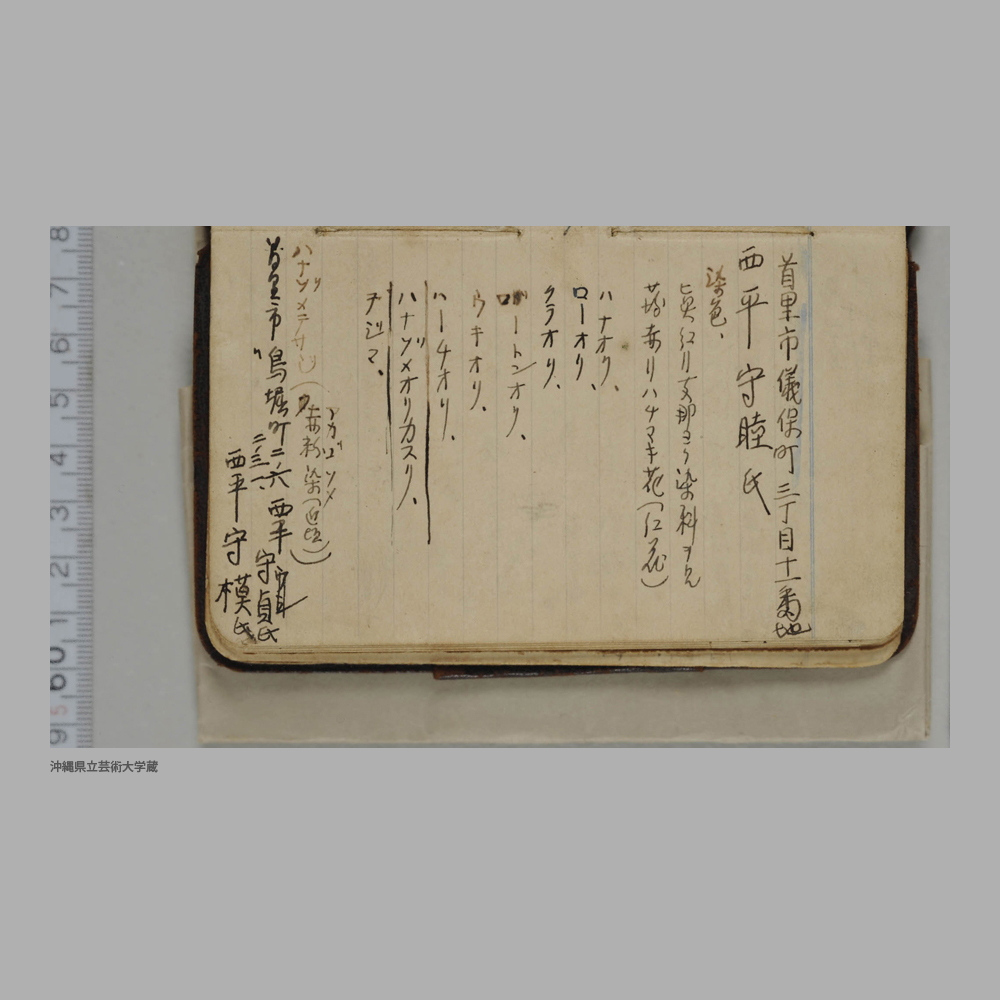 首里市儀保町三丁目十一番地
西平守睦氏
染色、
真紅リ支那ヨリ染料
赤リハナマキ花(仁花)
ハナオリ、
ローオリ、
クラオリ、
ロートンオリ、
ウキオリ、
ハーチオリ、
ハナヅメオリカスリ、
ヂジマ、
ハナヅメテサジ(
アカバナゾメ
赤粉染
首里市鳥堀町二ノ六 西平守貞氏
二ノ三六
西平守模氏
8 7 6 5 4 3 2 1 60 9 5
沖縄県立芸術大学蔵